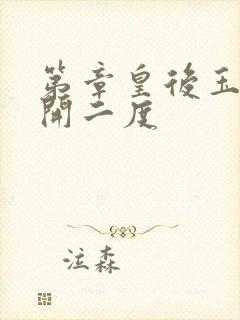 第章皇後玉
開二度
泣森